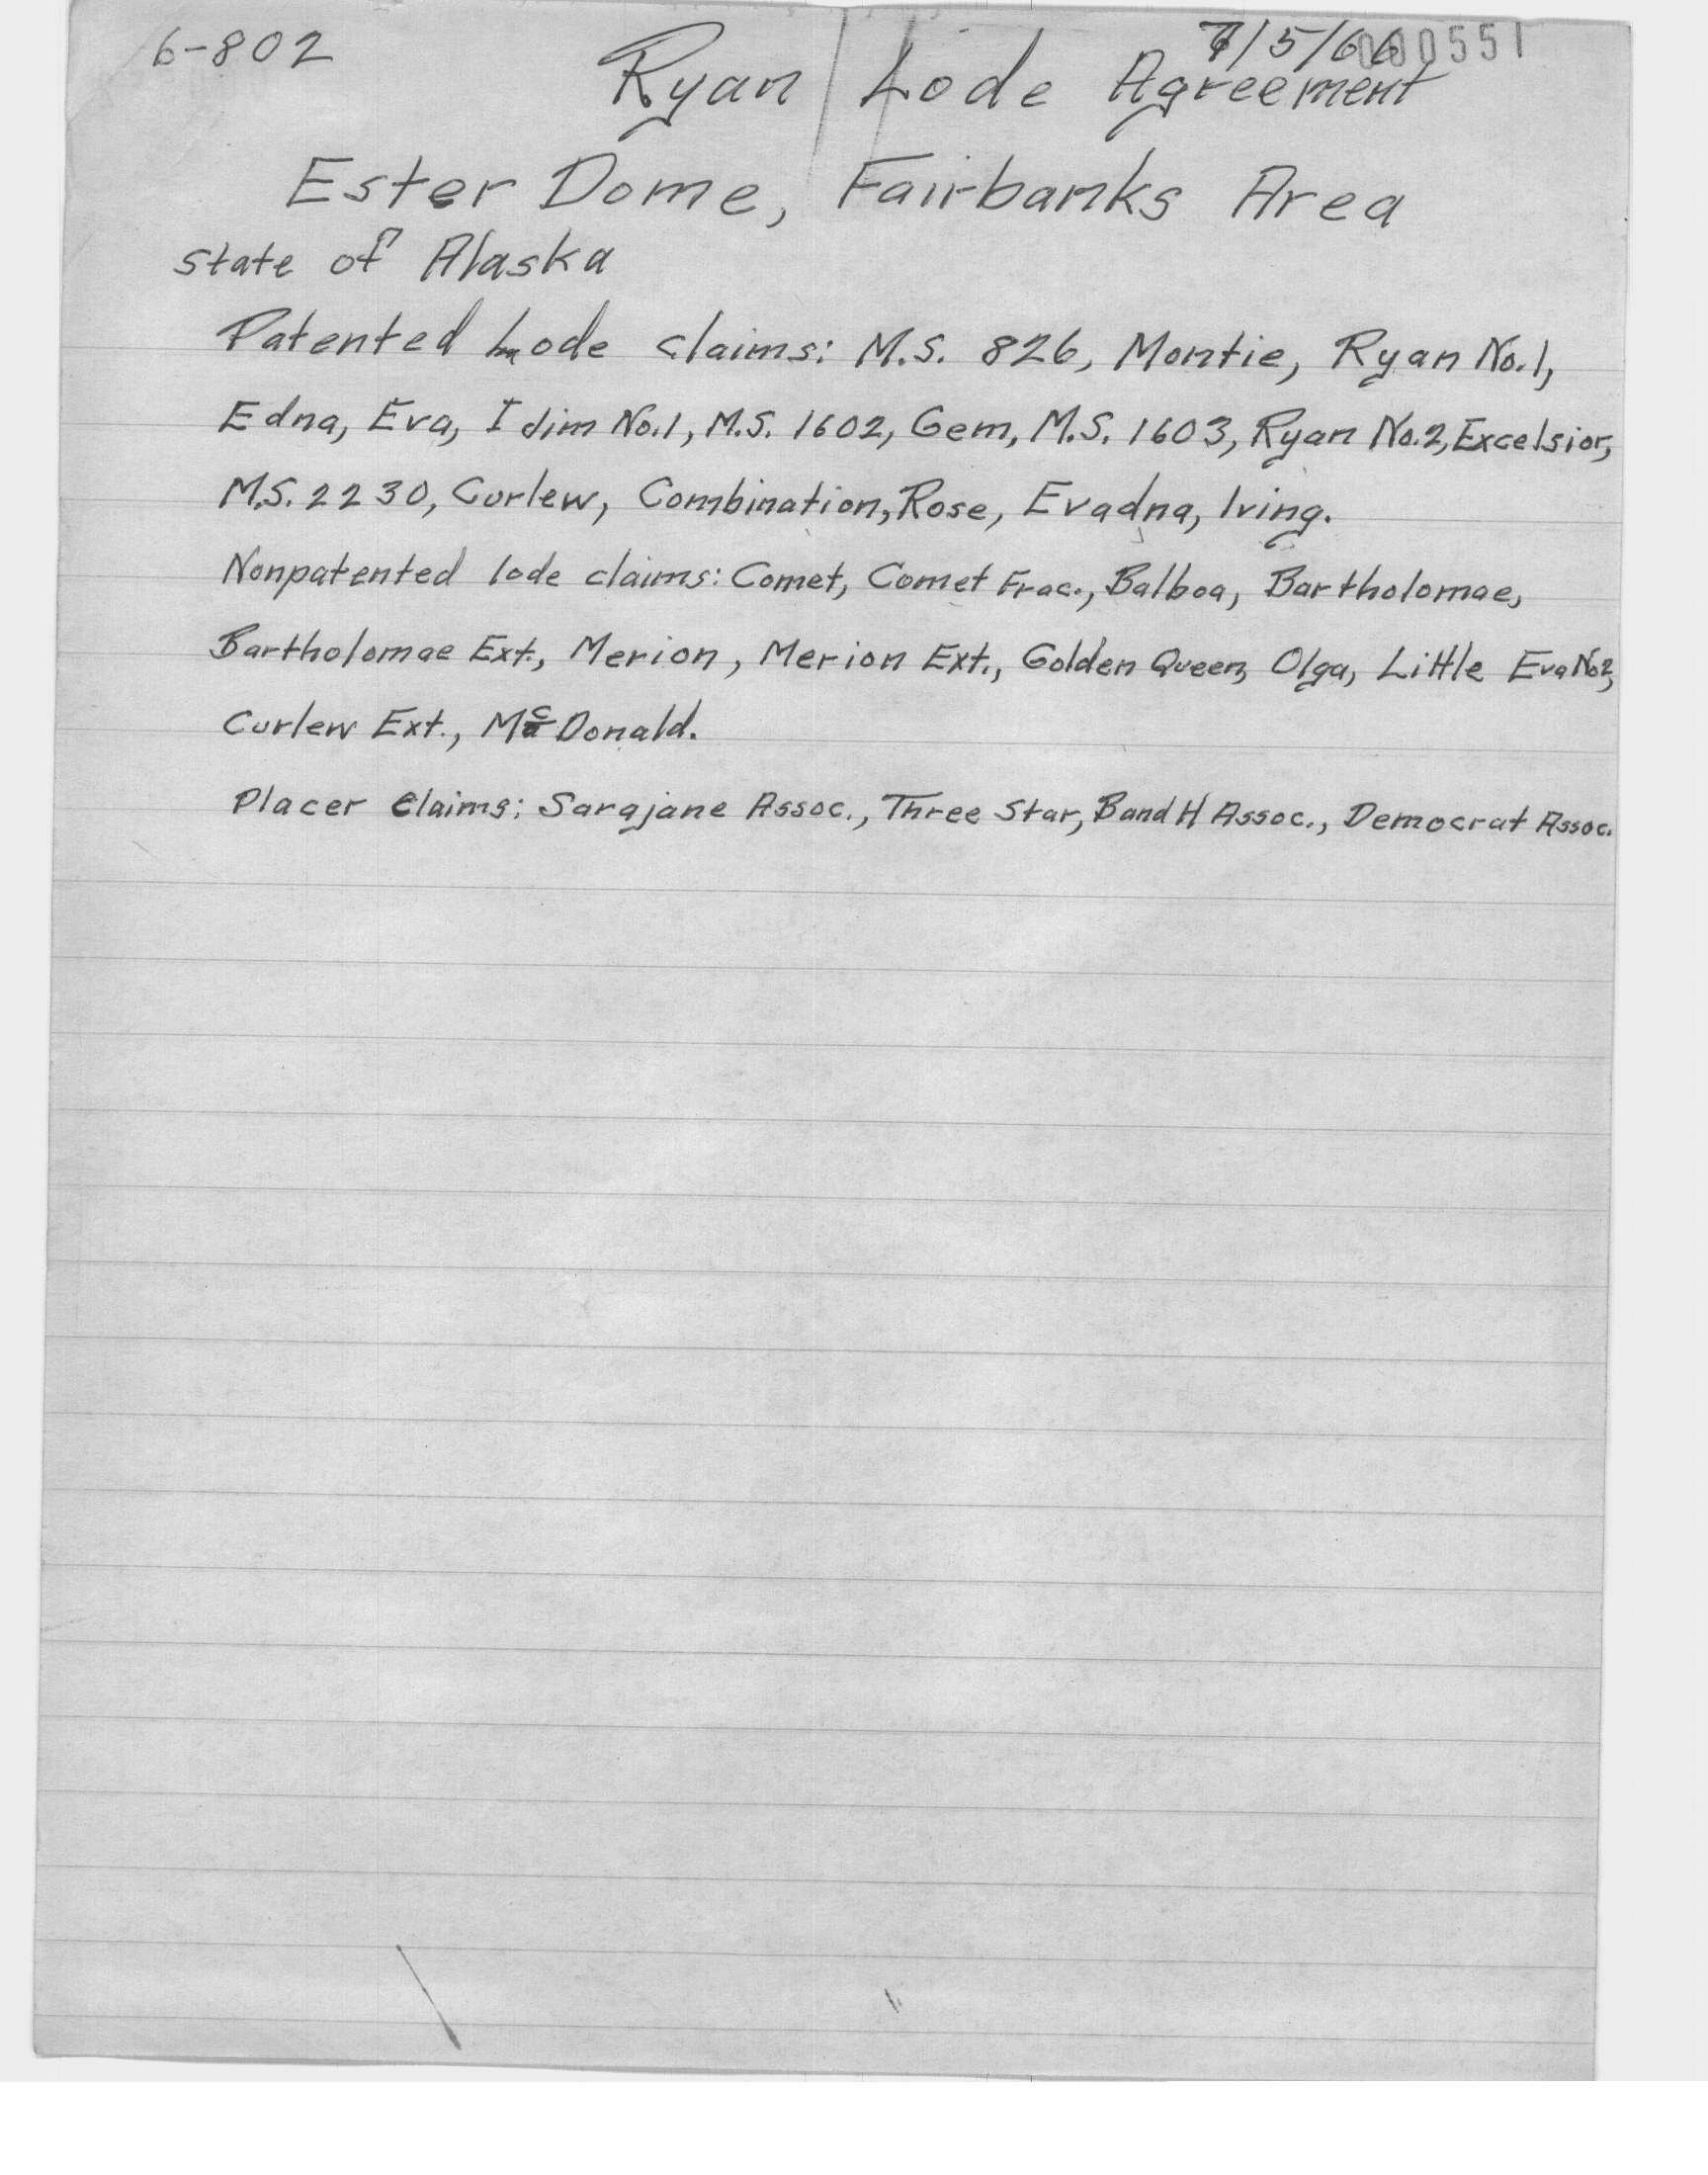 6-802
7/5/66 000551
Ryan Lode Agreement
Ester Dome, Fairbanks Area
State of Alaska
Patented Lode claims: M.S. 826, Montie, Ryan No.1,
Edna, Eva, I dim No.1, M.S. 1602, Gem, M.S. 1603, Ryan No.2, Excelsior,
M.S. 2230, Curlew, Combination, Rose, Evadna, Iving.
Nonpatented lode claims: Comet, Comet Frac., Balboa, Bartholomae,
Bartholomae Ext., Merion, Merion Ext., Golden Queen, Olga, Little Eva No2,
Curlew Ext., McDonald.
Placer Claims: Sarajane Assoc., Three Star, B and H Assoc., Democrat Assoc.